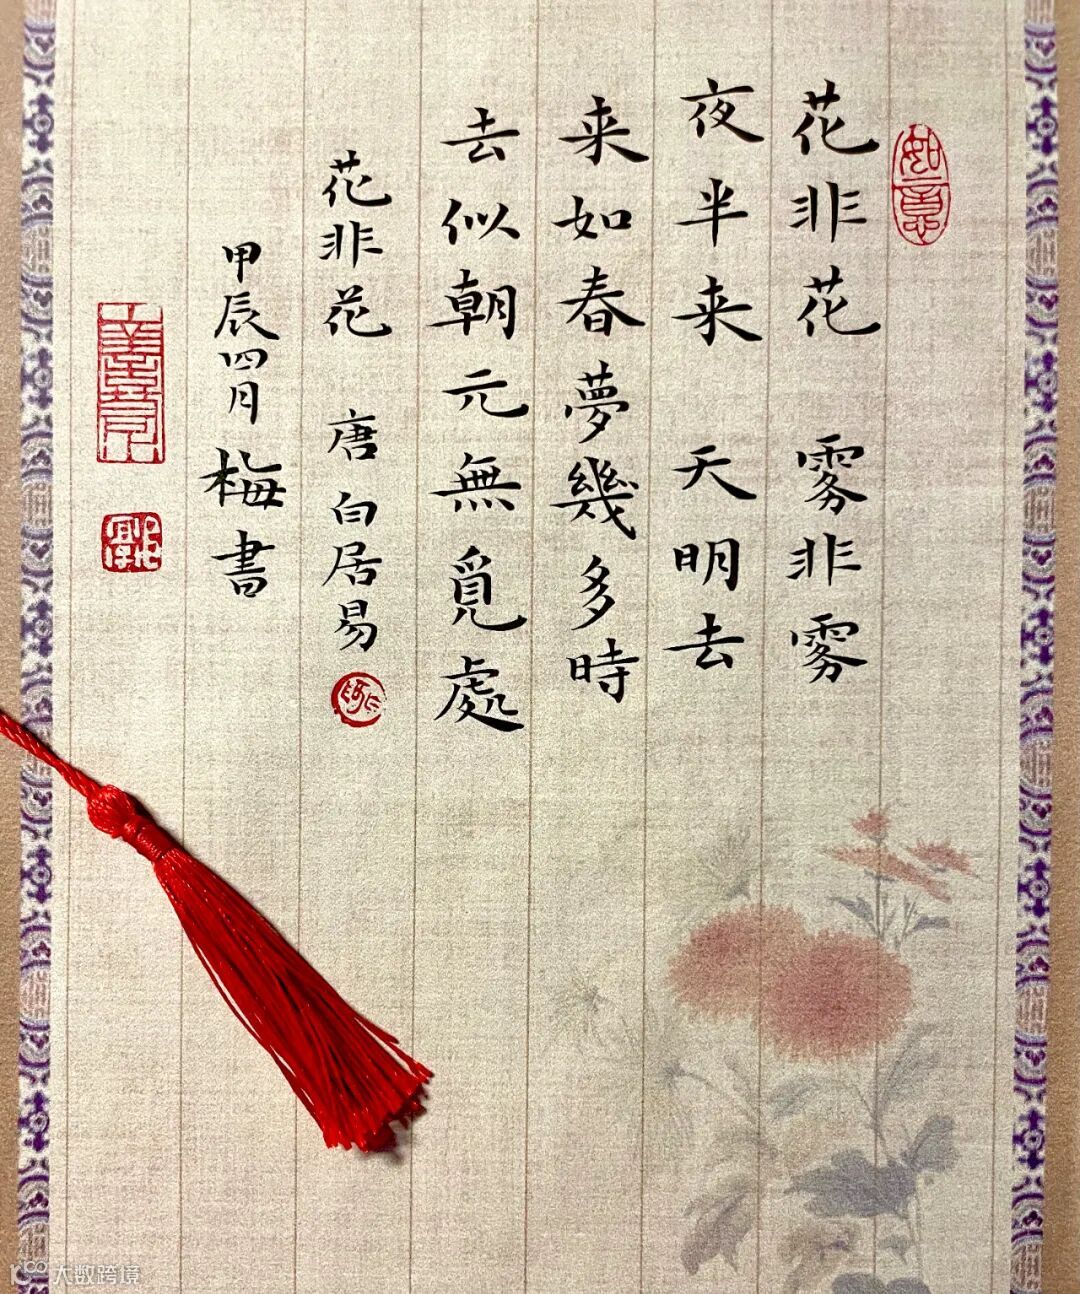 如意
花非花 雾非雾
夜半来 天明去
来如春夢幾多時
去似朝元無覓處
花非花 唐 白居易
甲辰四月梅書
大数跨境